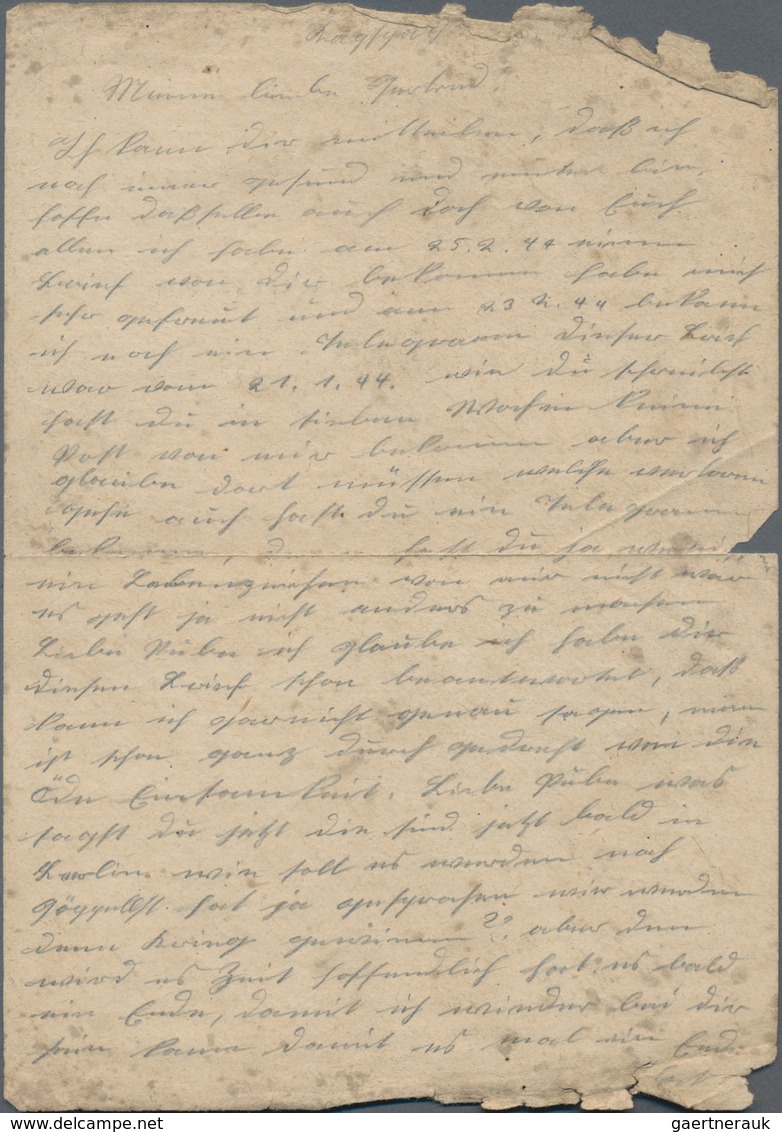 Meine liebe
Ich kann dir mitteilen, daß ich
noch immer gesund und munter bin,
hoffe daßselbe auch doch von Euch
allen ich habe am 25.2.44 einen
Brief von dir bekommen habe mich
sehr gefreut und am 23 2.44 bekam
ich noch ein Telegramm dieser Brief
war vom 21.1.44. wie du schreibst
hast du in sieben Wochen keine
Post von mir bekommen aber ich
glaube dort müssen welche verloren
gehn auch hast du ein Telegramm
hast du ja wenig
ein Lebenzeichen von mir nicht war
es geht ja nicht anders zu machen
Liebe ich glaube ich habe dir
diesen Brief schon beantwortet, daß
kann ich garnicht genau sagen, man
ist schon ganz durch gedreht von die
Öde Einsamkeit. Liebe was
sagst du jetzt die sind jetzt bald in
Berlin wie soll es werden noch
hat ja gesprochen wir werden
denn Krieg gewinnen?? aber dem
wird es Zeit hoffendlich hat es bald
ein Ende, damit ich wieder bei dir
sein kann damit es mal ein Ende